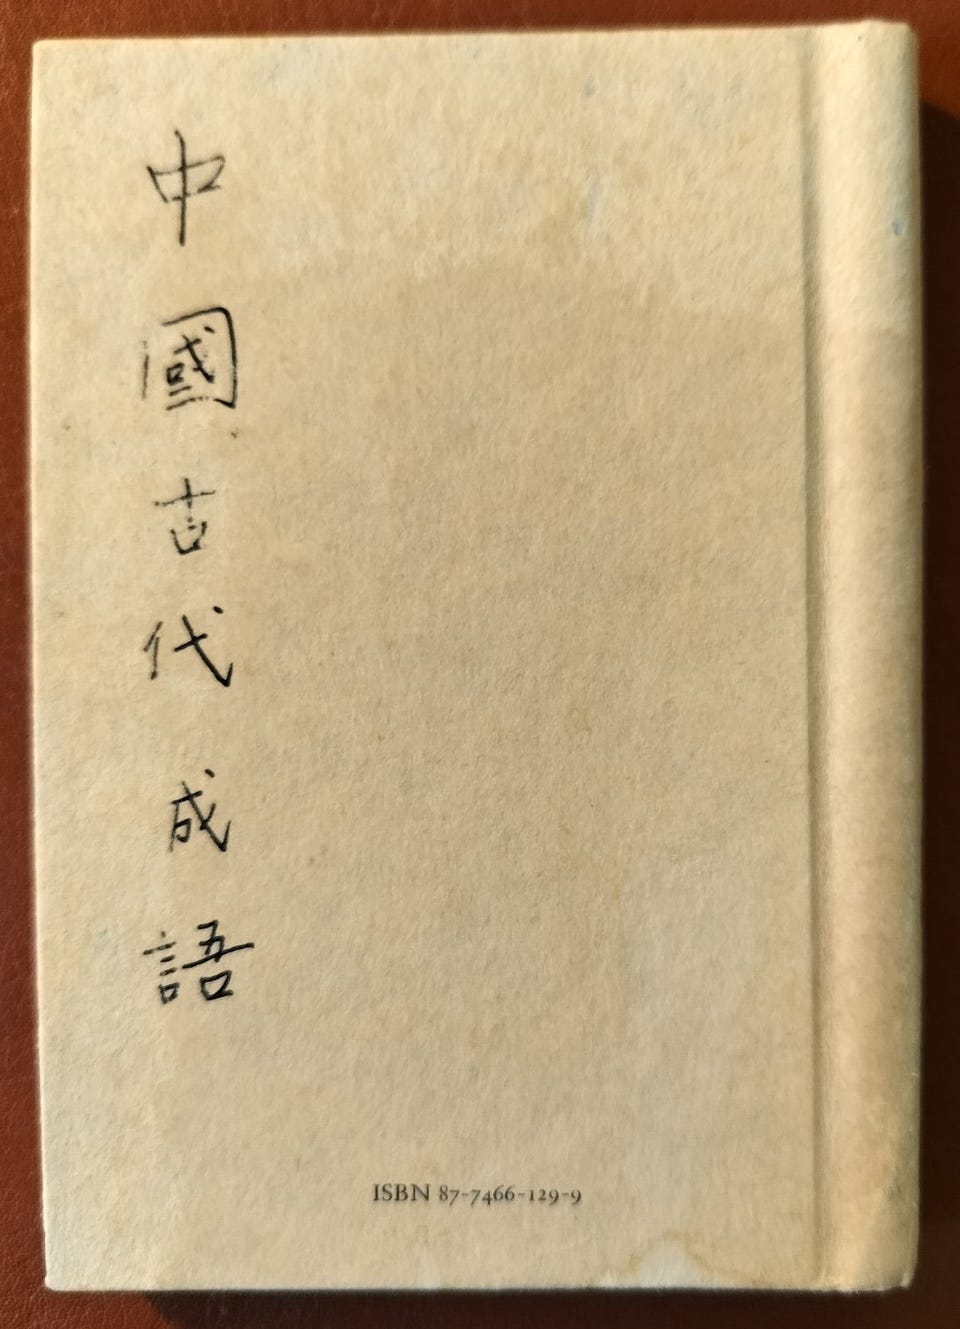 中國古代成語
ISBN 87-7466-129-9